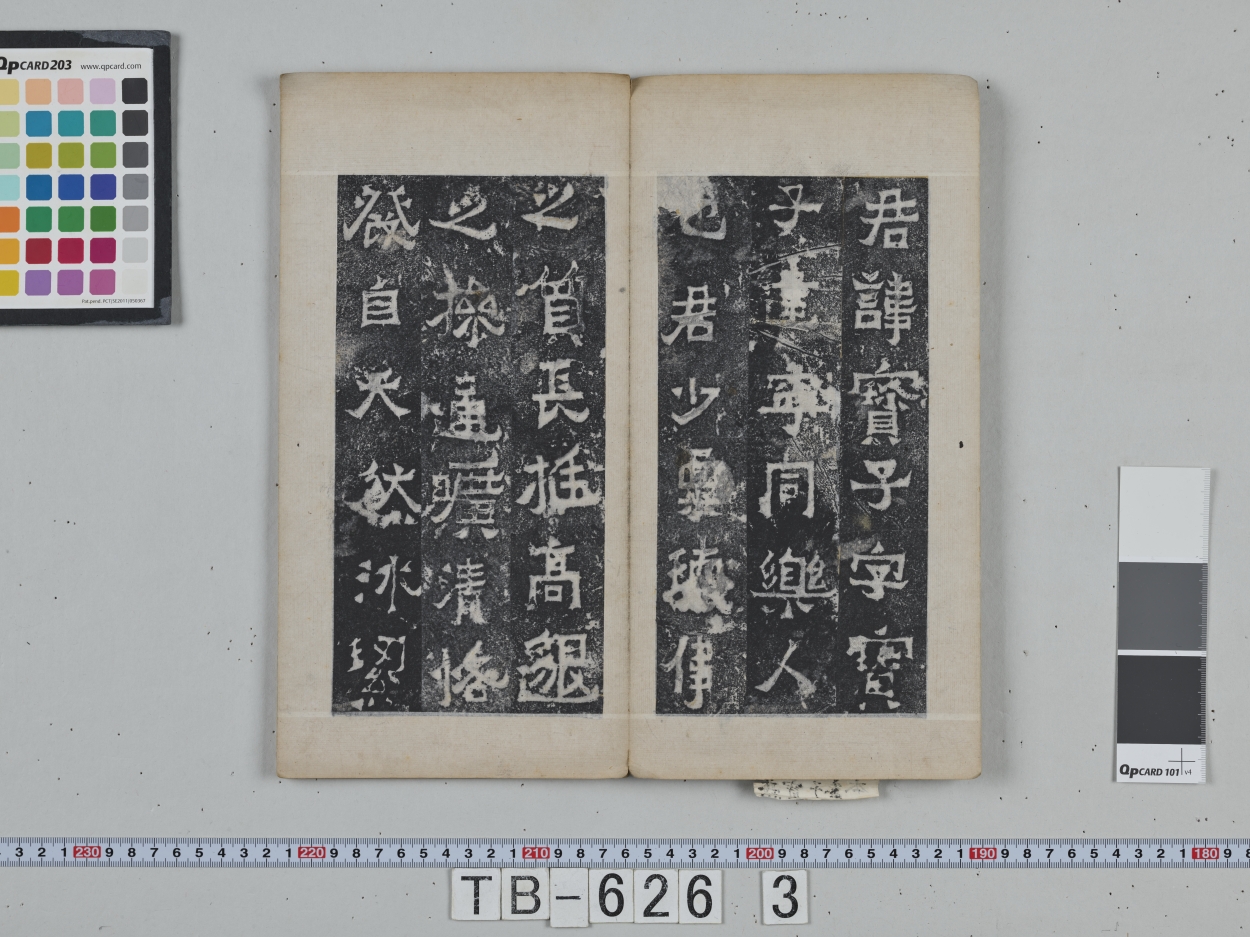 君諱寶子字寶
子建寧同樂人
也君少稟瓌偉
之質長挺高邈
之操通曠清恪
發自天然冰絜
QpCARD 203 www.qpcard.com
QpCARD 101 v4
3 2 1 230 9 8 7 6 5 4 3 2 1 220 9 8 7 6 5 4 3 2 1 210 9 8 7 6 5 4 3 2 1 200 9 8 7 6 5 4 3 2 1 190 9 8 7 6 5 4 3 2 1 180 9 8
TB-626 3